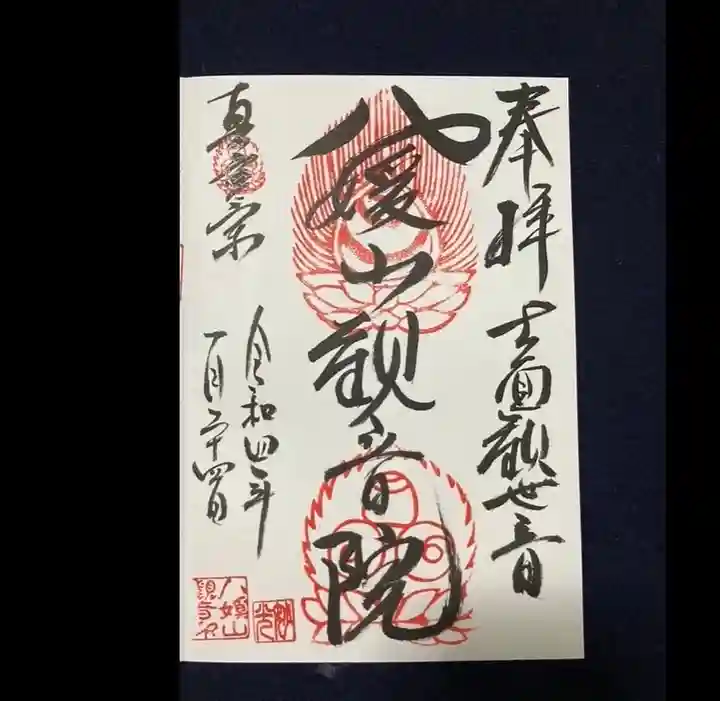 奉拝 十一面観世音
八媛山観音院
真言宗
令和四年
一月二十四日
八媛山